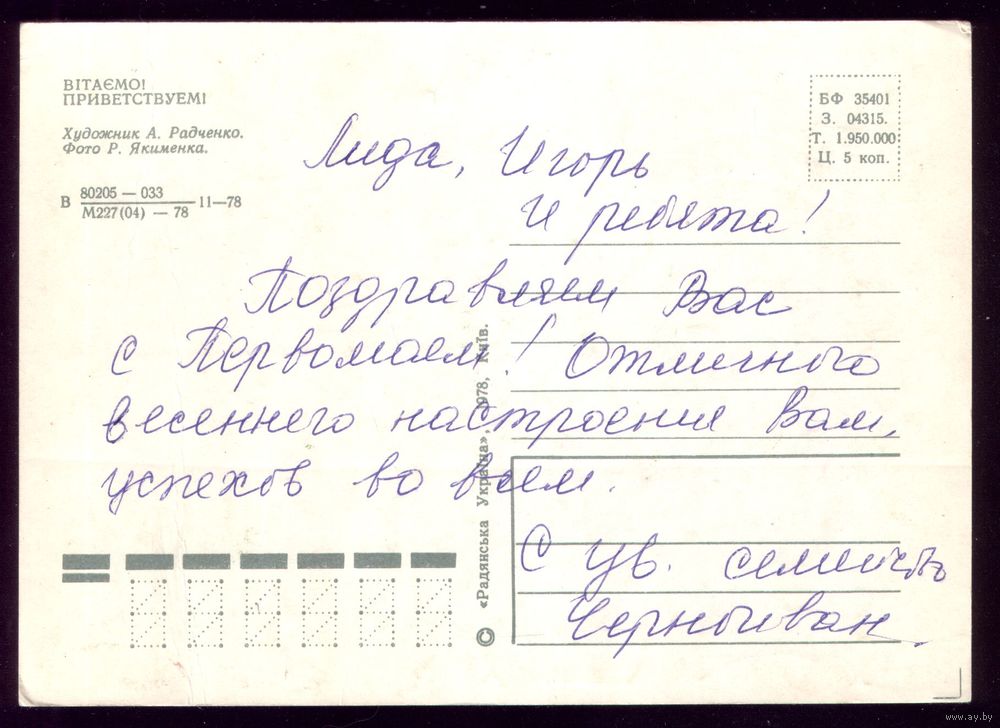 ВІТАЄМО!
ПРИВЕТСТВУЕМ!
Художник А. Радченко.
Фото Р. Якименка.
В 80205 — 033 11—78
М227(04) — 78
БФ 35401
З. 04315.
Т. 1.950.000
Ц. 5 коп.
Лида, Игорь
И ребята!
Поздравляем Вас
с Первомаем! Отличного
весеннего настроения Вам,
успехов во всем.
С ув. семейство
Черноиван.
© «Радянська Україна», 1978, Київ.
www.ay.by